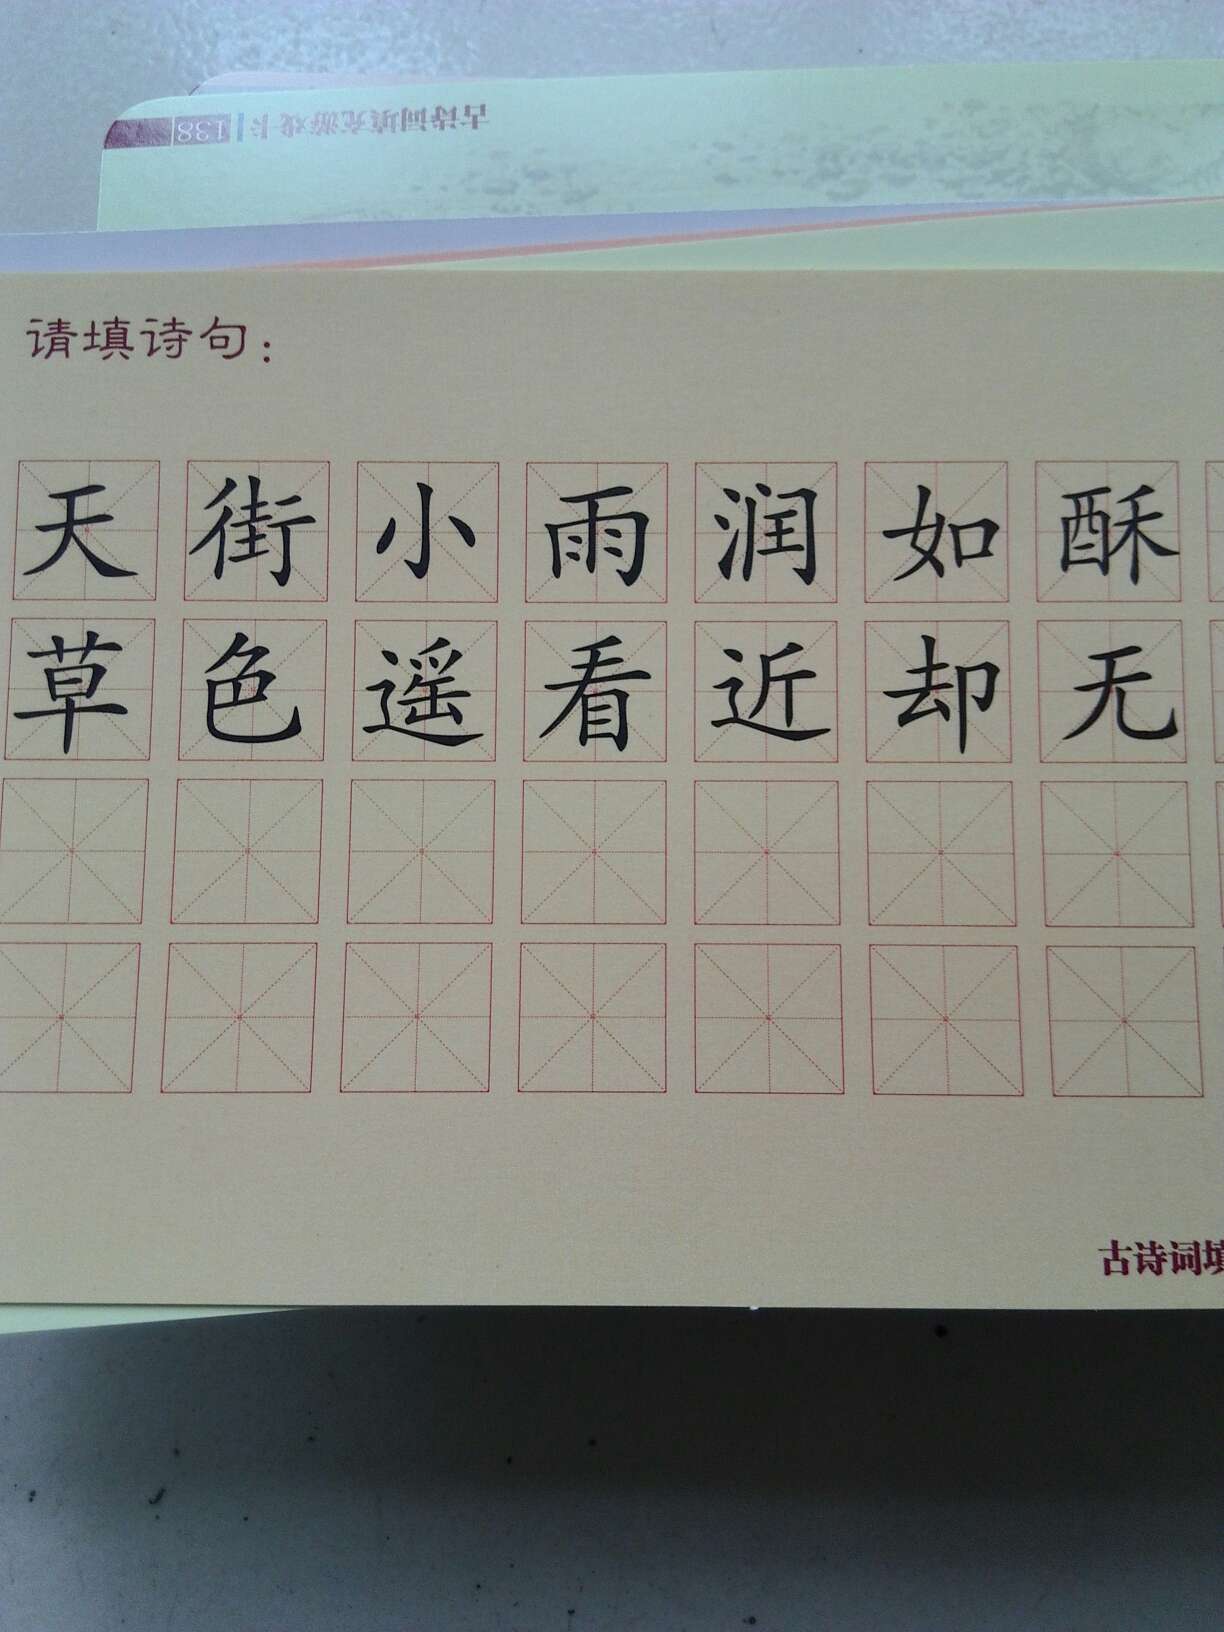 古诗词填充游戏卡 138
请填诗句：
天街小雨润如酥
草色遥看近却无
古诗词填